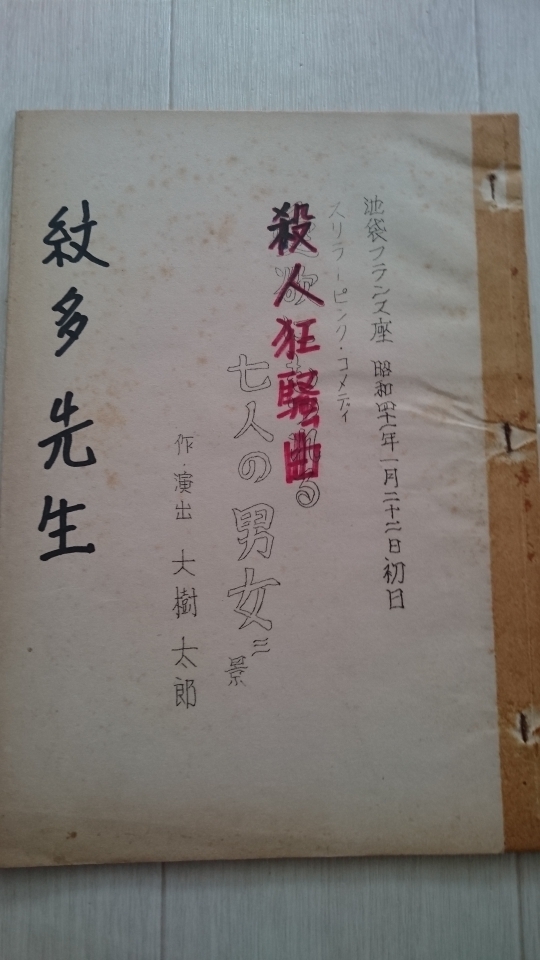 池袋フランス座 昭和四十一年一月二十二日初日
スリラーピンク・コメディ
殺人狂騒曲
七人の男女 三景
作・演出 大樹太郎
紋多先生